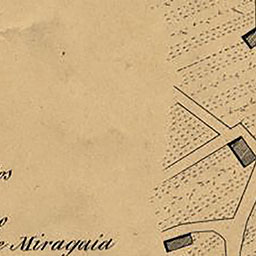 os
o
e Miraguia